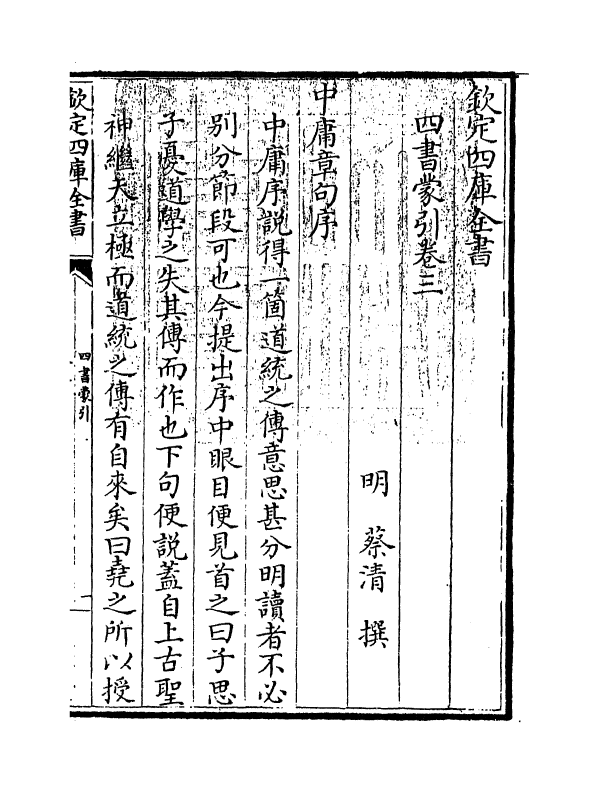 欽定四庫全書
四書蒙引卷三
明 蔡清 撰
中庸章句序
中庸序說得一箇道統之傳意思甚分明讀者不必
別分節段可也今提出序中眼目便見首之曰子思
子憂道學之失其傳而作也下句便說蓋自上古聖
神繼天立極而道統之傳有自來矣曰堯之所以授
欽定四庫全書
四書蒙引
一